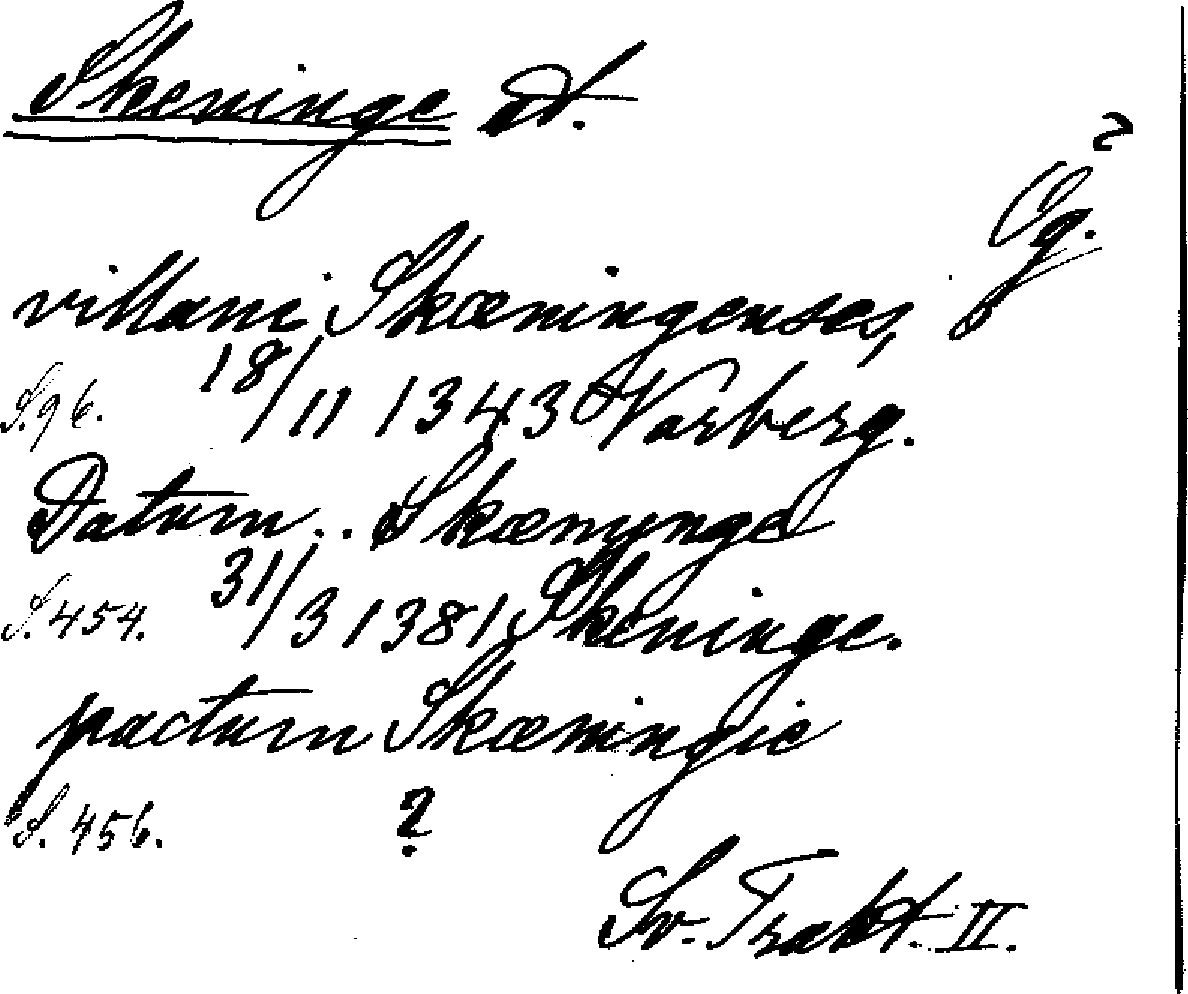 Skeninge st.
Ög.
villani Skæningenses,
S. 96. 18/11 1343 Varberg.
Datum .. Skæninge
S. 454. 31/3 1381 Skeninge.
pactum Skæningie
S. 456. ?
Sv. Trakt. II.